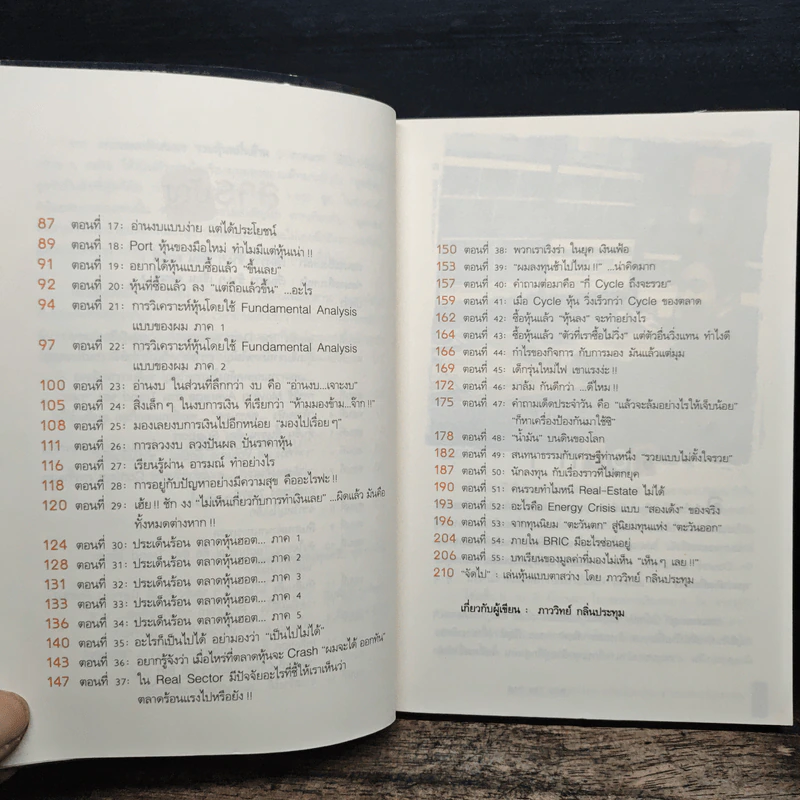 87 ตอนที่ 17: อ่านงบแบบง่าย แต่ได้ประโยชน์
89 ตอนที่ 18: Port หุ้นของมือใหม่ ทำไมมีแต่หุ้นเน่า !!
91 ตอนที่ 19: อยากได้หุ้นแบบซื้อแล้ว "ขึ้นเลย"
92 ตอนที่ 20: หุ้นที่ซื้อแล้ว ลง "แต่ถือแล้วขึ้น" ...อะไร
94 ตอนที่ 21: การวิเคราะห์หุ้นโดยใช้ Fundamental Analysis
แบบของผม ภาค 1
97 ตอนที่ 22: การวิเคราะห์หุ้นโดยใช้ Fundamental Analysis
แบบของผม ภาค 2
100 ตอนที่ 23: อ่านงบ ในส่วนที่ลึกกว่า งบ คือ "อ่านงบ...เจาะงบ"
105 ตอนที่ 24: สิ่งเล็กๆ ในงบการเงิน ที่เรียกว่า "ห้ามมองข้าม...จ๊ะ !!"
108 ตอนที่ 25: มองเลยงบการเงินไปอีกหน่อย "มองไปเรื่อยๆ"
111 ตอนที่ 26: การลวงงบ ลวงปันผล ปั่นราคาหุ้น
116 ตอนที่ 27: เรียนรู้ผ่าน อารมณ์ ทำอย่างไร
118 ตอนที่ 28: การอยู่กับปัญหาอย่างมีความสุข คืออะไรฟะ !!
120 ตอนที่ 29: เฮ้ย !! ชัก งง "ไม่เห็นเกี่ยวกับการทำเงินเลย" ...ผิดแล้ว มันคือ
ทั้งหมดต่างหาก !!
124 ตอนที่ 30: ประเด็นร้อน ตลาดหุ้นฮอต... ภาค 1
128 ตอนที่ 31: ประเด็นร้อน ตลาดหุ้นฮอต... ภาค 2
131 ตอนที่ 32: ประเด็นร้อน ตลาดหุ้นฮอต... ภาค 3
133 ตอนที่ 33: ประเด็นร้อน ตลาดหุ้นฮอต... ภาค 4
136 ตอนที่ 34: ประเด็นร้อน ตลาดหุ้นฮอต... ภาค 5
140 ตอนที่ 35: อะไรก็เป็นไปได้ อย่ามองว่า "เป็นไปไม่ได้"
143 ตอนที่ 36: อยากรู้จังว่า เมื่อไหร่ที่ตลาดหุ้นจะ Crash "ผมจะได้ ออกทัน"
147 ตอนที่ 37: ใน Real Sector มีปัจจัยอะไรที่ชี้ให้เราเห็นว่า
ตลาดร้อนแรงไปหรือยัง !!
150 ตอนที่ 38: พวกเราเริงร่า ในยุค เงินเฟ้อ
153 ตอนที่ 39: "ผมลงทุนช้าไปไหม !!" ...น่าคิดมาก
157 ตอนที่ 40: คำถามต่อมาคือ "กี่ Cycle ถึงจะรวย"
159 ตอนที่ 41: เมื่อ Cycle หุ้น วิ่งเร็วกว่า Cycle ของตลาด
162 ตอนที่ 42: ซื้อหุ้นแล้ว "หุ้นลง" จะทำอย่างไร
164 ตอนที่ 43: ซื้อหุ้นแล้ว "ตัวที่เราซื้อไม่วิ่ง" แต่ตัวอื่นวิ่งแทน ทำไงดี
166 ตอนที่ 44: กำไรของกิจการ กับการมอง มันแล้วแต่มุม
169 ตอนที่ 45: เด็กรุ่นใหม่ไฟ เขาแรงง่ะ !!
172 ตอนที่ 46: มาล้ม กันดีกว่า ...ดีไหม !!
175 ตอนที่ 47: คำถามเด็ดประจำวัน คือ "แล้วจะล้มอย่างไรให้เจ็บน้อย"
"ก็หาเครื่องป้องกันมาใช้ซิ"
178 ตอนที่ 48: "น้ำมัน" บนดินของโลก
182 ตอนที่ 49: สนทนาธรรมกับเศรษฐีท่านหนึ่ง "รวยแบบไม่ตั้งใจรวย"
187 ตอนที่ 50: นักลงทุน กับเรื่องราวที่ไม่ตกยุค
190 ตอนที่ 51: คนรวยทำไมหนี Real-Estate ไม่ได้
193 ตอนที่ 52: อะไรคือ Energy Crisis แบบ "สองเด้ง" ของจริง
196 ตอนที่ 53: จากทุนนิยม "ตะวันตก" สู่นิยมทุนแห่ง "ตะวันออก"
204 ตอนที่ 54: ภายใน BRIC มีอะไรซ่อนอยู่
206 ตอนที่ 55: บทเรียนของมูลค่าที่มองไม่เห็น "เห็นๆ เลย !!"
210 "จัดไป" : เล่นหุ้นแบบตาสว่าง โดย ภาววิทย์ กลิ่นประทุม
เกี่ยวกับผู้เขียน : ภาววิทย์ กลิ่นประทุม